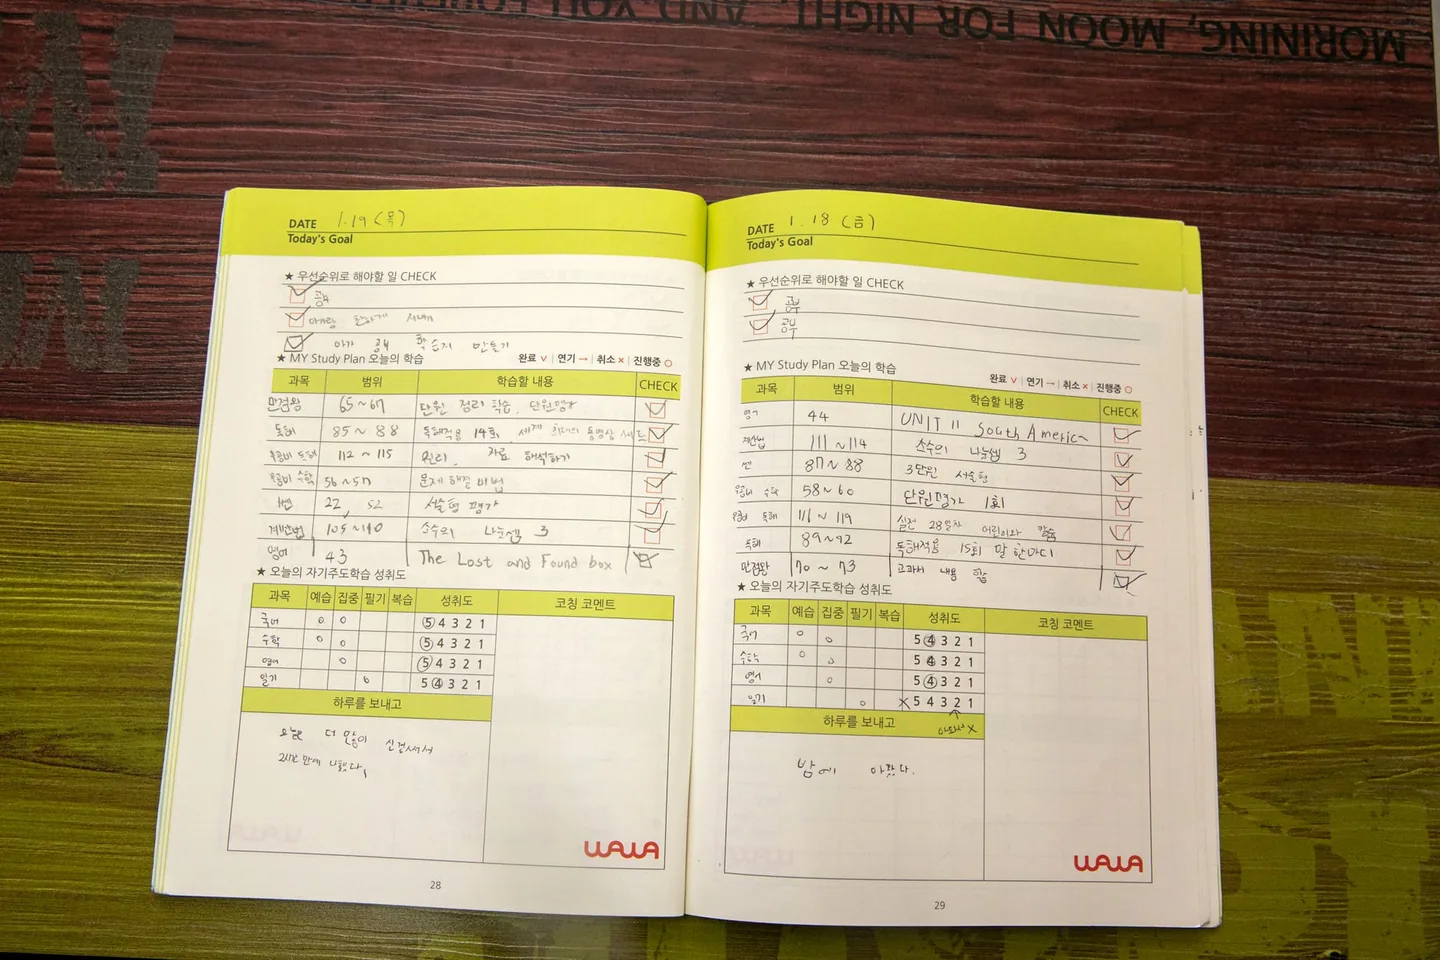 MORINING, MOON FOR NIGHT, AND YOU FOREVER
DATE 1.19 (목)
Today's Goal
★ 우선순위로 해야할 일 CHECK
공부
아가랑 친하게 지내기
아가 공부 학습지 만들기
★ MY Study Plan 오늘의 학습 완료 ∨ | 연기 → | 취소 × | 진행중 ○
과목 범위 학습할 내용 CHECK
만점왕 65~67 단원 정리 학습, 단원평가
독해 85~88 독해적용 14회, 세계 최대의 동영상
독해 112~115 원리, 자료 해석하기
수학 56~57 문제 해결 비법
쎈 22, 52 서술형 평가
계산법 105~110 소수의 나눗셈 3
영어 43 The Lost and Found box
★ 오늘의 자기주도학습 성취도
과목 예습 집중 필기 복습 성취도 코칭 코멘트
국어 ○ ○ 5 4 3 2 1
수학 ○ ○ 5 4 3 2 1
영어 ○ 5 4 3 2 1
일기 ○ 5 4 3 2 1
하루를 보내고
오늘 더 많이 신경써서
2시간 만에 끝냈다.
WAWA
28
DATE 1.18 (금)
Today's Goal
★ 우선순위로 해야할 일 CHECK
공부
공부
★ MY Study Plan 오늘의 학습 완료 ∨ | 연기 → | 취소 × | 진행중 ○
과목 범위 학습할 내용 CHECK
영어 44 UNIT 11 South America
계산법 111~114 소수의 나눗셈 3
쎈 87~88 3단원 서술형
수학 58~60 단원평가 1회
독해 116~119 실전 28일차 어린이와 칼슘
독해 89~92 독해적용 15회 말 한마디
만점왕 70~73 교과서 내용 학습
★ 오늘의 자기주도학습 성취도
과목 예습 집중 필기 복습 성취도 코칭 코멘트
국어 ○ ○ 5 4 3 2 1
수학 ○ ○ 5 4 3 2 1
영어 ○ 5 4 3 2 1
일기 ○ × 5 4 3 2 1
하루를 보내고 아파서 ×
밤에 아팠다.
WAWA
29